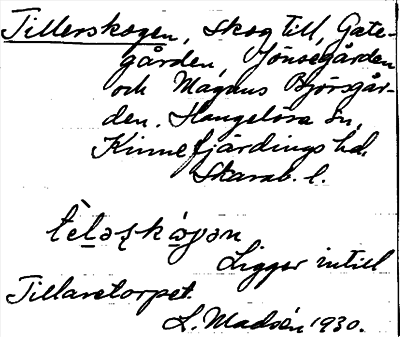 Tillerskogen, skog till, Gate-
gården, Jönsegården
och Magnus Björsgår-
den. Hangelösa sn,
Kinnefjärdings hd.
Skarab. l.
Ligger intill
Tillaretorpet.
L. Madsén 1930.